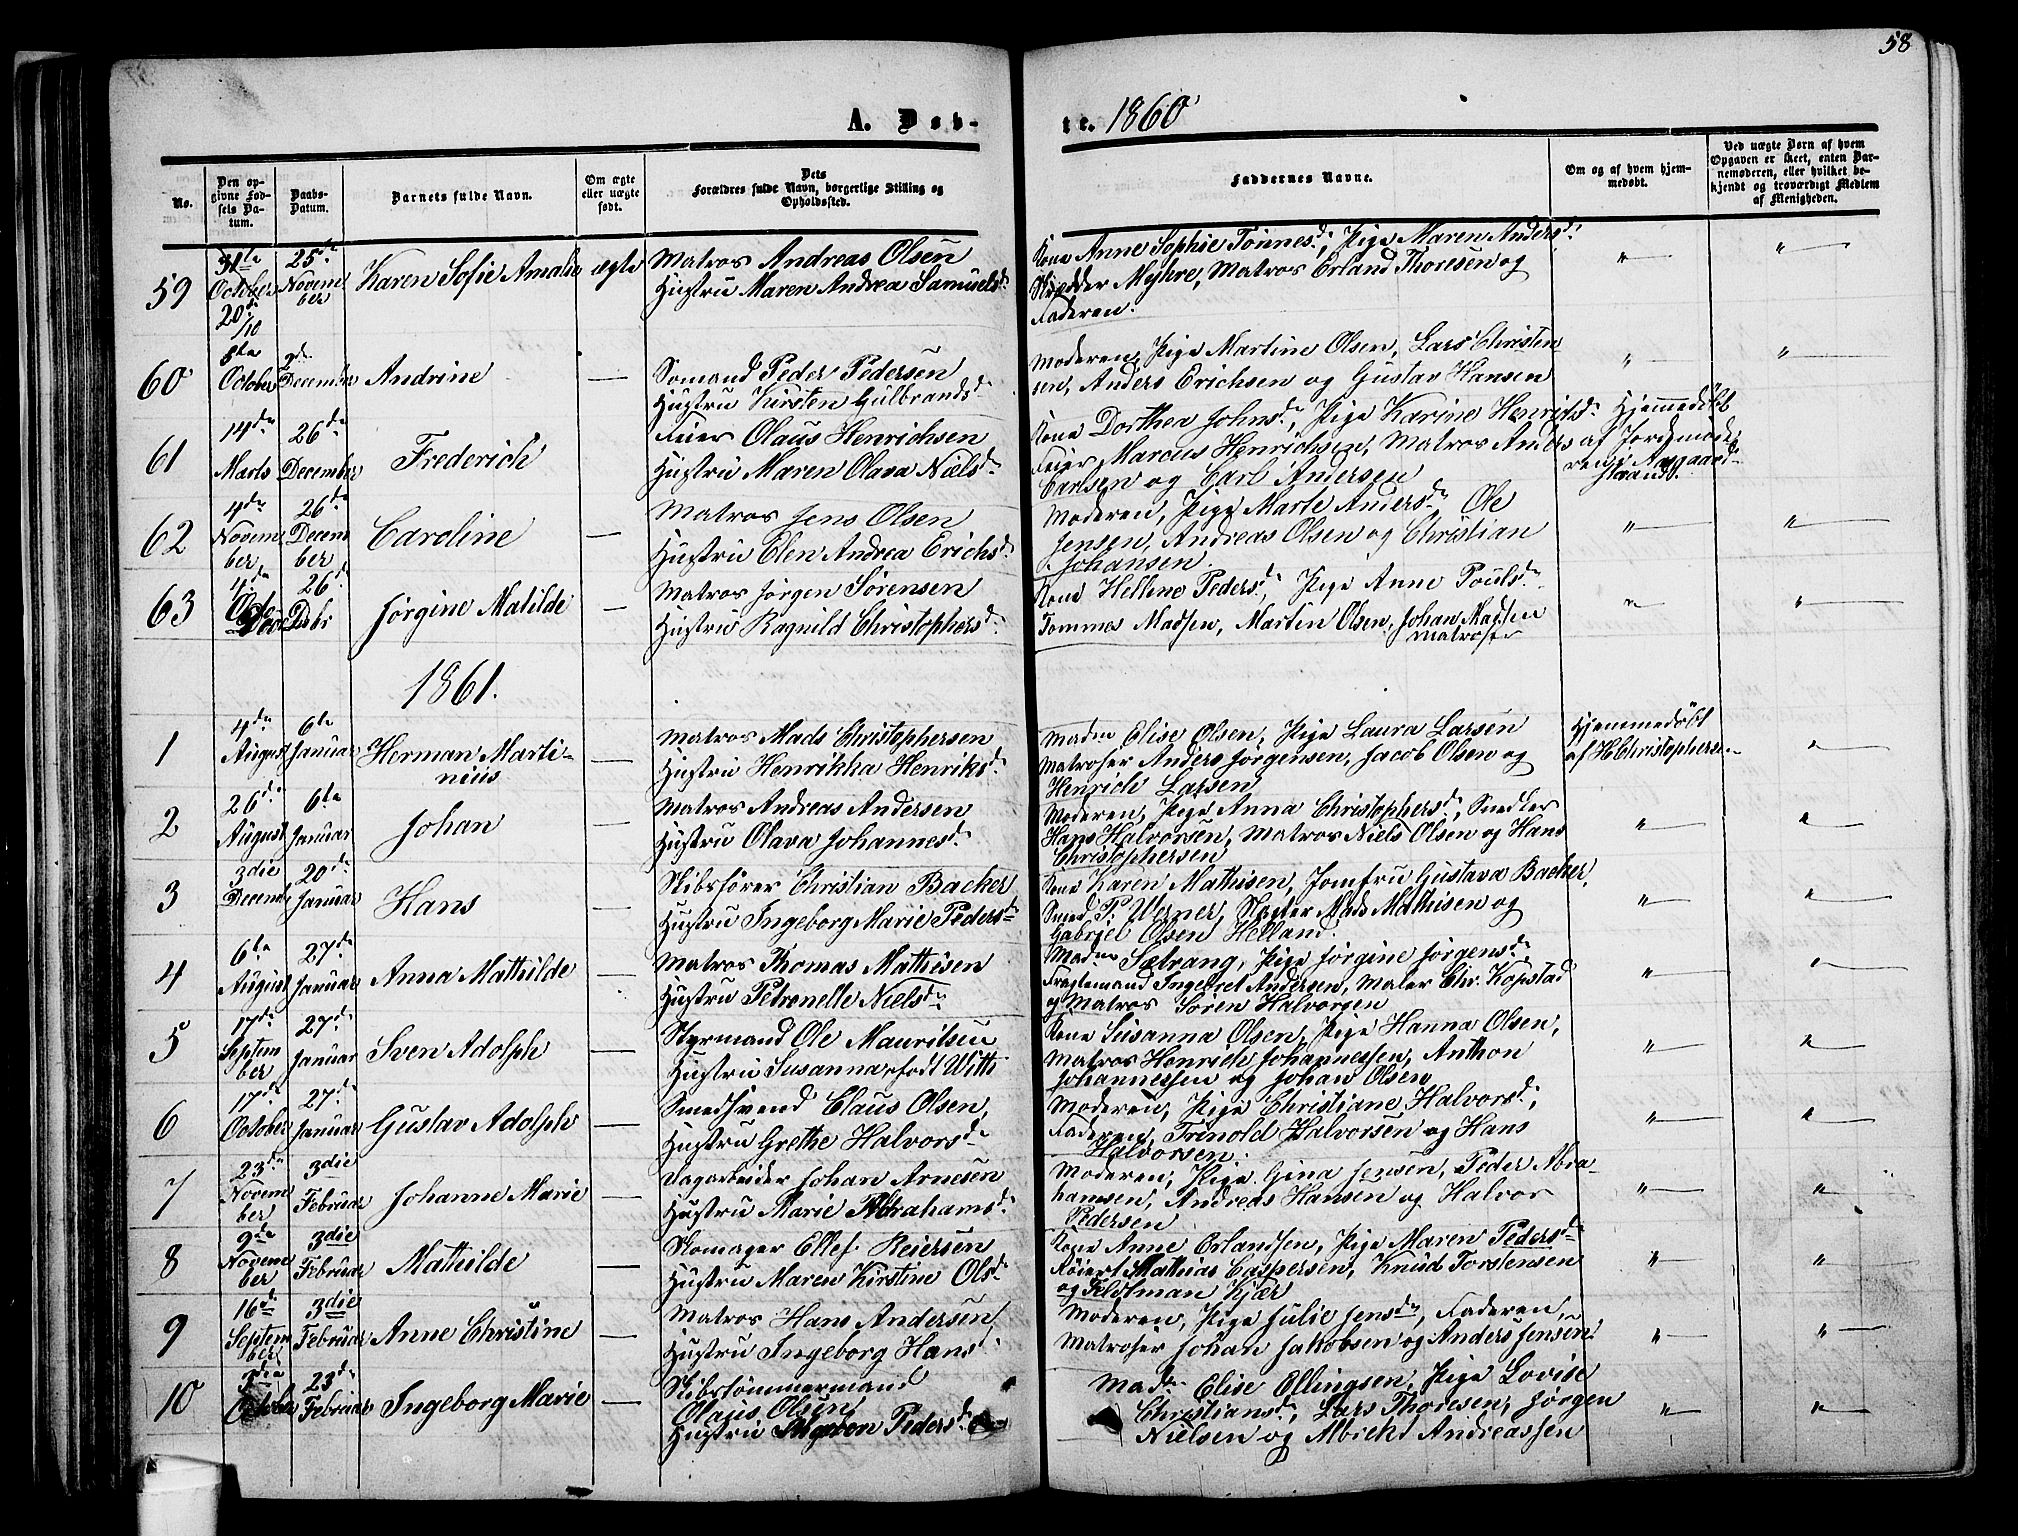 58
A. Døb-
te. 1860
No.
Den op-
givne Fød-
sels Da-
tum.
Daabs-
Datum.
Barnets fulde Navn.
Om ægte
eller uægte
født.
Dets
Forældres fulde Navn, borgerlige Stilling og
Opholdssted.
Faddernes Navne.
Om og af hvem hjem-
medøbt.
Ved uægte Børn af hvem
Opgaven er skeet, enten Bar-
nemoderen, eller hvilket be-
kjendt og troværdigt Medlem
af Menigheden.
59
31te
October
20/10
25de
Novem
ber
Karen Sofie Amalie
ægte
Matros Andreas Olsen
Hustru Maren Andrea Samuelsd.
Kone Anne Sophie Tönnesd., Pige Maren Andersd.
Skrædder Myhre, Matros Erland Thoresen og
Faderen.
60
8te
October
2den
December
Andrine
Sømand Peder Pedersen
Hustru Kirsten Gulbrandsd.
Moderen, Pige Martine Olsen, Lars Christen
sen, Anders Erichsen og Gustav Hansen
61
14de
Marts
26de
December
Frederich
Feier Olaus Henrichsen
Hustru Maren Olava Nielsd.
Kone Dorthea Johnsd., Pige Karine Henrichsd.
Feier Marcus Henrichsen, Matros Anders
Carlsen og Carl Andersen
Hjemmedöbt
af Jordemode-
ren i Aasgaard-
strand.
62
4de
Novem
ber
26de
Decem
ber
Caroline
Matros Jens Olsen
Hustru Elen Andrea Erichsd.
Moderen, Pige Marte Andersd., Ole
Jensen, Andreas Olsen og Christian
Johansen.
63
4de
26de
Decbr
Jørgine Matilde
Matros Jørgen Sørensen
Hustru Ragnild Christophersd.
Kone Helline Pedersd., Pige Anne Poulsd.
Tommes Madsen, Martin Olsen, Johan Madsen
Matroser
1861.
1
4de
August
6te
Januar
Herman Marti-
nius
Matros Mads Christophersen
Hustru Henrikka Henriksd.
Madm Elise Olsen, Pige Laura Larsen
Matroser Anders Jørgensen, Jacob Olsen og
Henrich Larsen
Hjemmedöbt
af H Christophersen
2
26de
August
6te
Januar
Johan
Matros Andreas Andersen
Hustru Olava Johannesd.
Moderen, Pige Anna Christophersd., Snedker
Hans Halvorsen, Matros Niels Olsen og Hans
Christophersen
3
3die
Decemb
20de
Januar
Hans
Skibsfører Christian Backer
Hustru Ingeborg Marie Pedersd.
Kone Karen Mathisen, Jomfru Gustava Backer,
Smed P. Werner, Slagter Mads Mathisen og
Gabriel Olsen Helland.
4
6te
August
27de
Januar
Anna Mathilde
Matros Thomas Mathisen
Hustru Petronelle Nielsd.
Madme Sætrang, Pige Jørgine Jørgensd.
Fragtemand Ingebret Andersen, Maler Chr. Kopstad
og Matros Sören Halvorsen
5
17de
Septem
ber
27de
Januar
Sven Adolph
Styrmand Ole Mauritsen
Hustru Susanna, født Witt
Kone Susanna Olsen, Pige Hanna Olsen,
Matros Henrich Johannessen, Anthon
Johannessen og Johan Olsen
6
17de
October
27de
Januar
Gustav Adolph
Smedsvend Claus Olsen,
Hustru Grethe Halvorsd.
Moderen, Pige Christiane Halvorsd.,
Faderen, Trinold Halvorsen og Hans
Halvorsen.
7
23de
Novem
ber
3die
Februar
Johanne Marie
Dagarbeider Johan Arnesen
Hustru Marie Abrahamsd.
Moderen, Pige Gina Jensen, Peder Abra-
hamsen, Andreas Hansen og Halvor
Pedersen
8
9de
Novem
ber
3die
Februar
Mathilde
Skomager Ellef Reiersen
Hustru Maren Kirstine Olsd.
Kone Anne Erlandsen, Pige Maren Pedersd.
Mathias Caspersen, Knud Torstensen
og Feldtman Kjær
9
16de
Septem
ber
3die
Februar
Anne Christine
Matros Hans Andersen,
Hustru Ingeborg Hansd.
Moderen, Pige Julie Jensd., Faderen,
Matroser Johan Jakobsen og Anders Jensen.
10
23de
Februar
Ingeborg Marie
Skibstømmermand
Olaus Olsen
Hustru Ingebor Pedersd.
Madm Elise Ellingsen, Pige Lovise
Christiansd., Lars Thoresen, Jørgen
Nielsen og Albrekt Andreassen